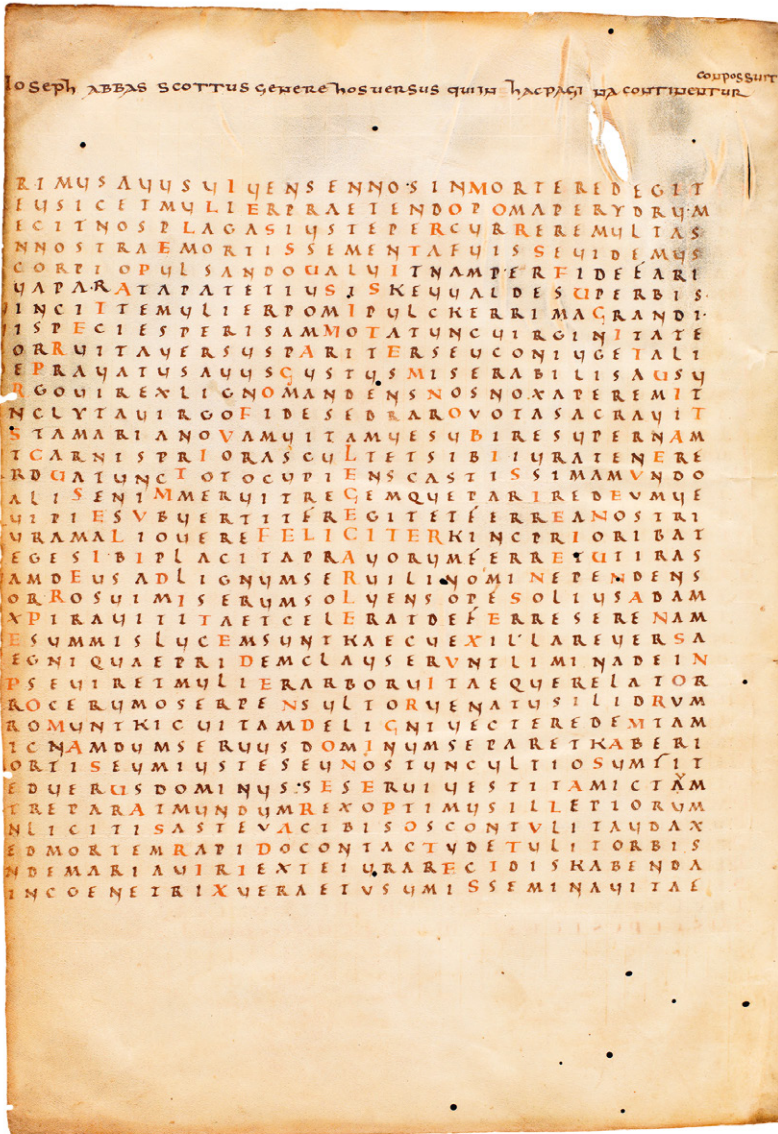 Ioseph ABBAS SCOTTUS GENERE hOSUERSUS QUIIN hACPAGINA CONTINENTUR
COMPOSSUIT
RIMUSAUUSUIUENSENNOSINMORTEREDEGIT
EUSICETMULIERPRAETENDOPOMAPERUDRUM
ECITNOSPLAGASIUSTEPERCURREREMULTAS
NNOSTRAEMORTISSEMENTAFUISSEUIDEMUS
CORPIOPULSANDOUALUITNAMPERFIDEFARI
UAPARATAPATETIUSISKEUUALDESUPERBIS
INCITTEMULIERPOMIPULCKERRIMAGRANDI
ISPECIESPERISAMMOTATUNCUIRGINITATE
ORRUITAUERSUSPARITERSEUCONIUGETALI
EPRAUATUSAUUSGUSTUSMISERABILISAUSU
RGOUIREXLIGNOMANDENSNOSNOXAPEREMIT
NCLUTAUIRGOFIDESEDRAROVOTASACRAUIT
STAMARIANOVAMUITAMUESUBIRESUPERNAM
TCARNISPRIORASCULTETSIBIIURATENERE
RDUATUNCTOTOCUPIENSCASTISSIMAMVNDO
ALISENIMMERUITREGEMQUEPARIREDEUMUE
UIPIESVBUERTITEREGITETEERREANOSTRI
URAMALIOUEREFELICITERKINCPRIORIBAT
EGESIBIPLACITAPRAUORUMFERRETUTIRAS
AMDEUSADLIGNUMSERUILINOMINEPENDENS
ORROSUIMISERUMSOLUENSOPESOLIUSADAM
XPIRAUITITAETCELERATDEFERRESERENAM
ESUMMISLUCEMSUNTKAECUEXILLAREUERSA
EGNIQUAEPRIDEMCLAUSERVNTLIMINADEIN
PSEUIRETMULIERARBORUITAEQUERELATOR
ROCERUMOSERPENSULTORUENATUSILIDRVM
ROMUNTKICUITAMDELIGNIUECTEREDEMTAM
ICNAMDUMSERUUSDOMINUMSEPARETKABERI
ORTISEUMIUSTESEUNOSTUNCULTIOSUMSIT
EDUERUSDOMINUSSESERUIUESTITAMICTAM
TREPARATMUNDUMREXOPTIMUSILLEPIORVM
NLICITISASTEVACIBISOSCONTVLITAUDAX
EDMORTEMRAPIDOCONTACTUDETULITORBIS
NDEMARIAUIRIEXTEIURARECIDISKABENDA
INCGENETRIXUERAETVSUMISSEMINAUITAE